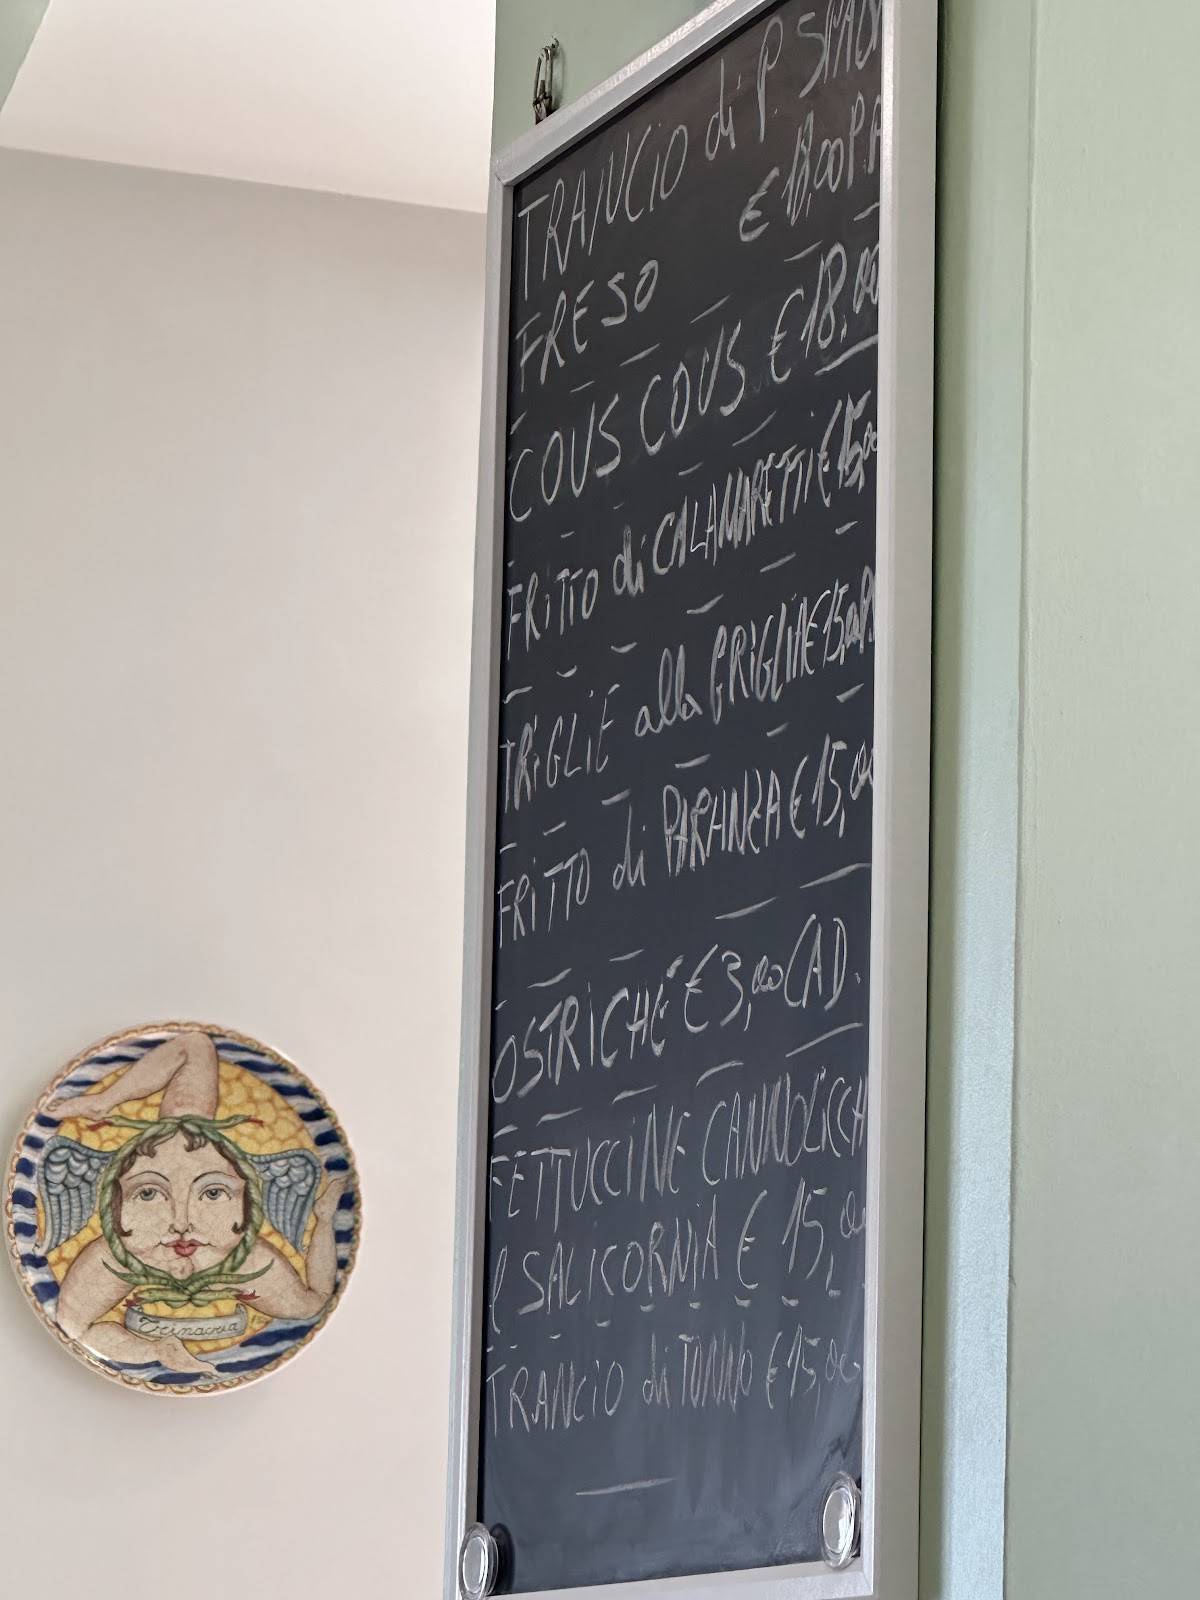 TRANCIO di P. SPAD
€ 18,00 PA
FRESO
COUS COUS € 18,00
FRITTO di CALAMARETTI € 15,00
TRIGLIE alla GRIGLIA € 15,00 P.
FRITTO di PARANZA € 15,00
OSTRICHE € 3,00 CAD.
FETTUCCINE CANNOLICCH
e SALICORNIA € 15,00
TRANCIO di TONNO € 15,00
Trinacria